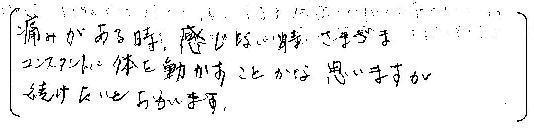 痛みがある時、感じない時 さまざま
コンスタントに体を動かすことかな 思いますが
続けたいと おもいます。